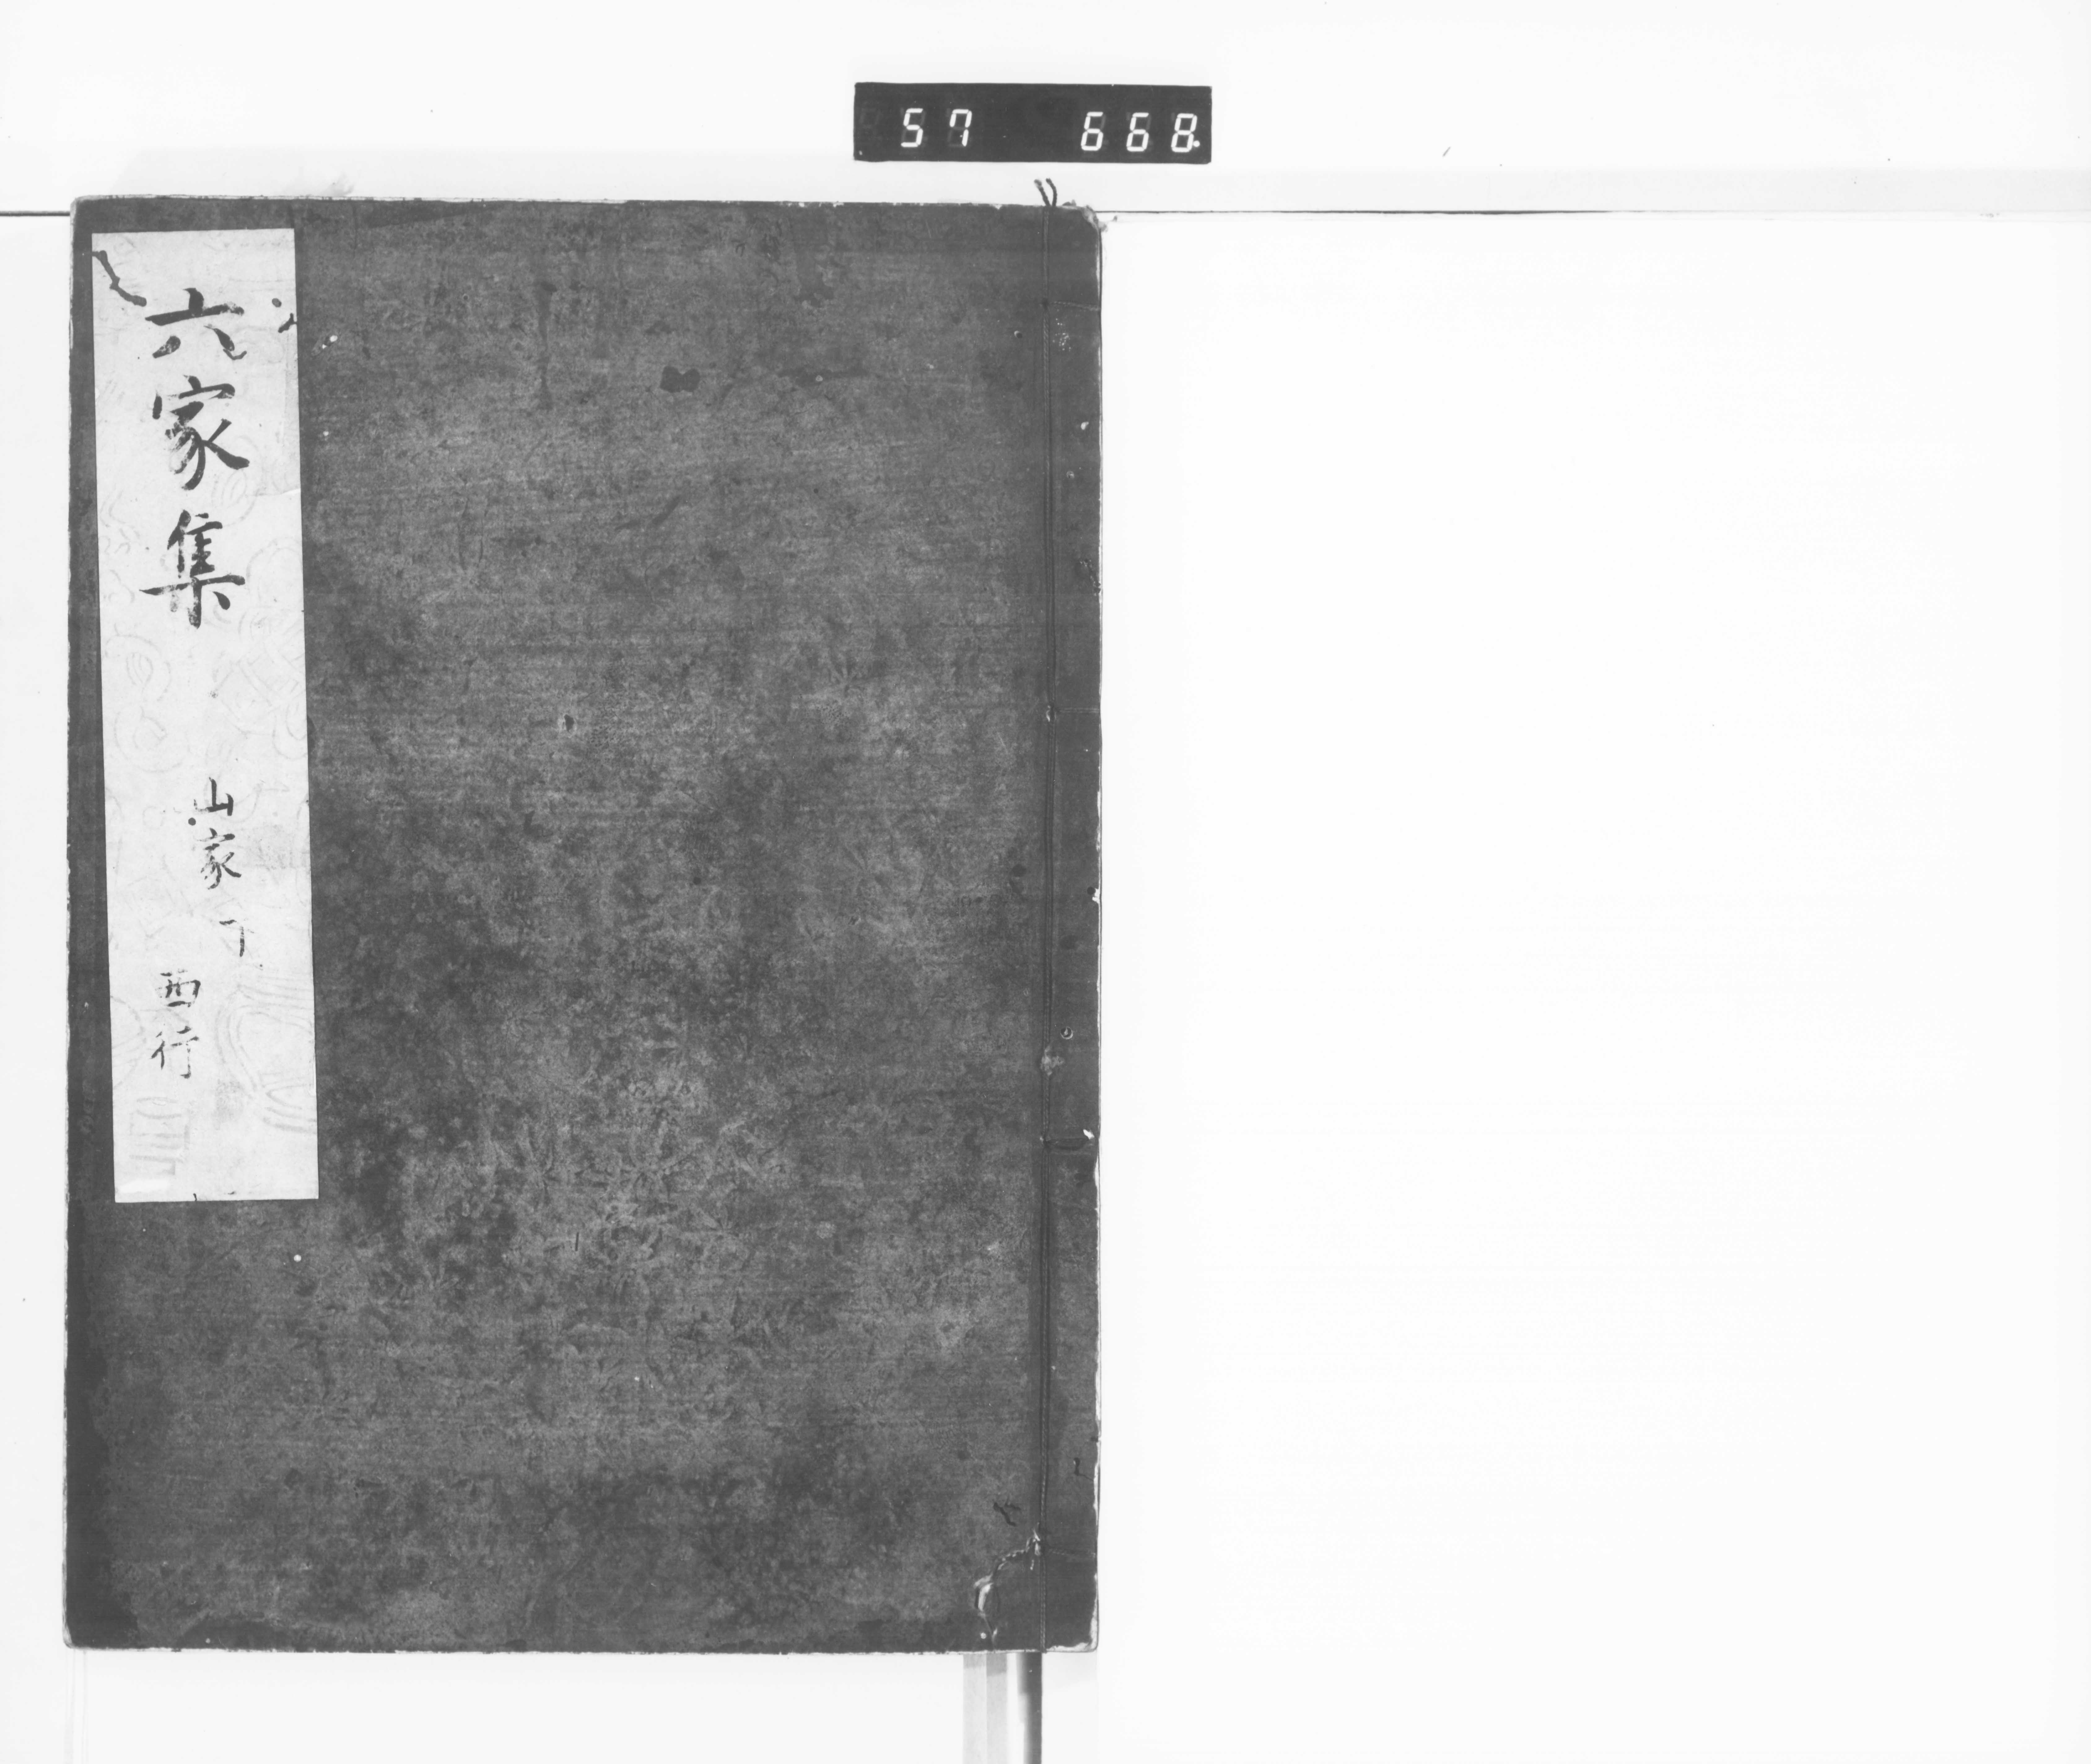 57 668
六家集
山家下
西行